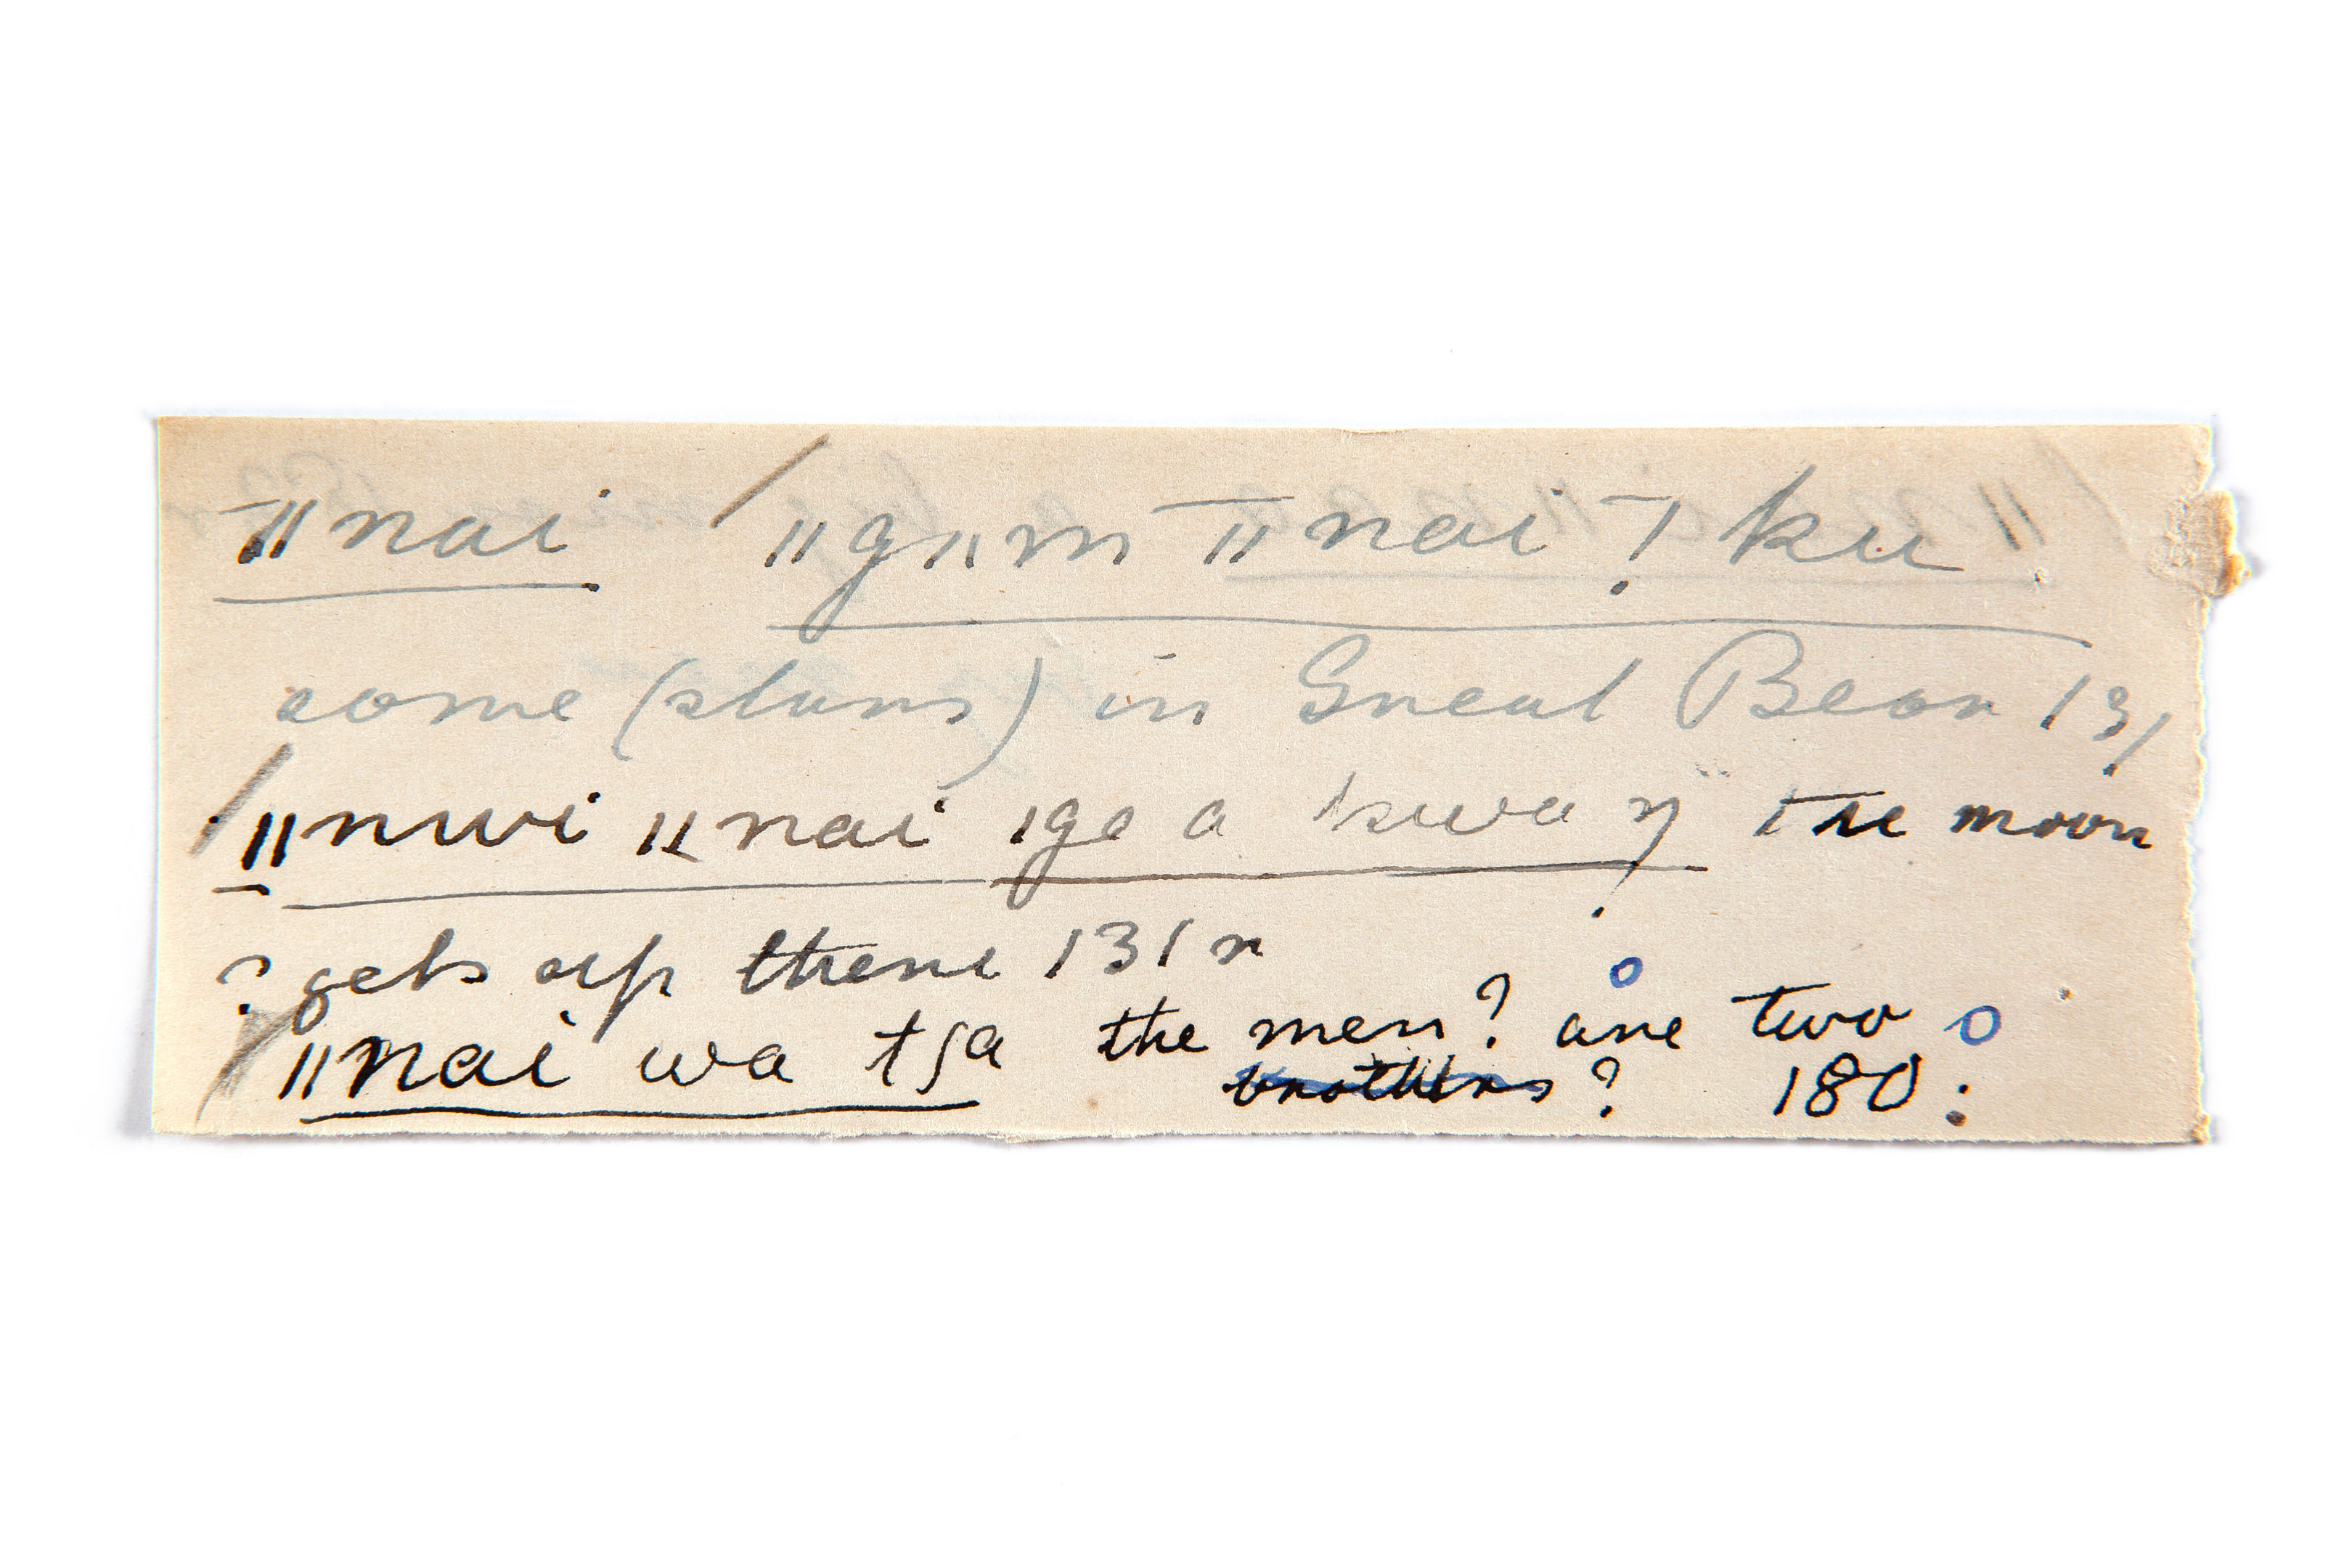 ǁnai ǁgıım ǁnai ! ku
some (stars) in Great Bear 131
ǁnwi ǁnai ǀge a kwa ŋ the moon
? gets up there 131 r
ǁnai wa tʃa the men? are two
brothers? 180 :